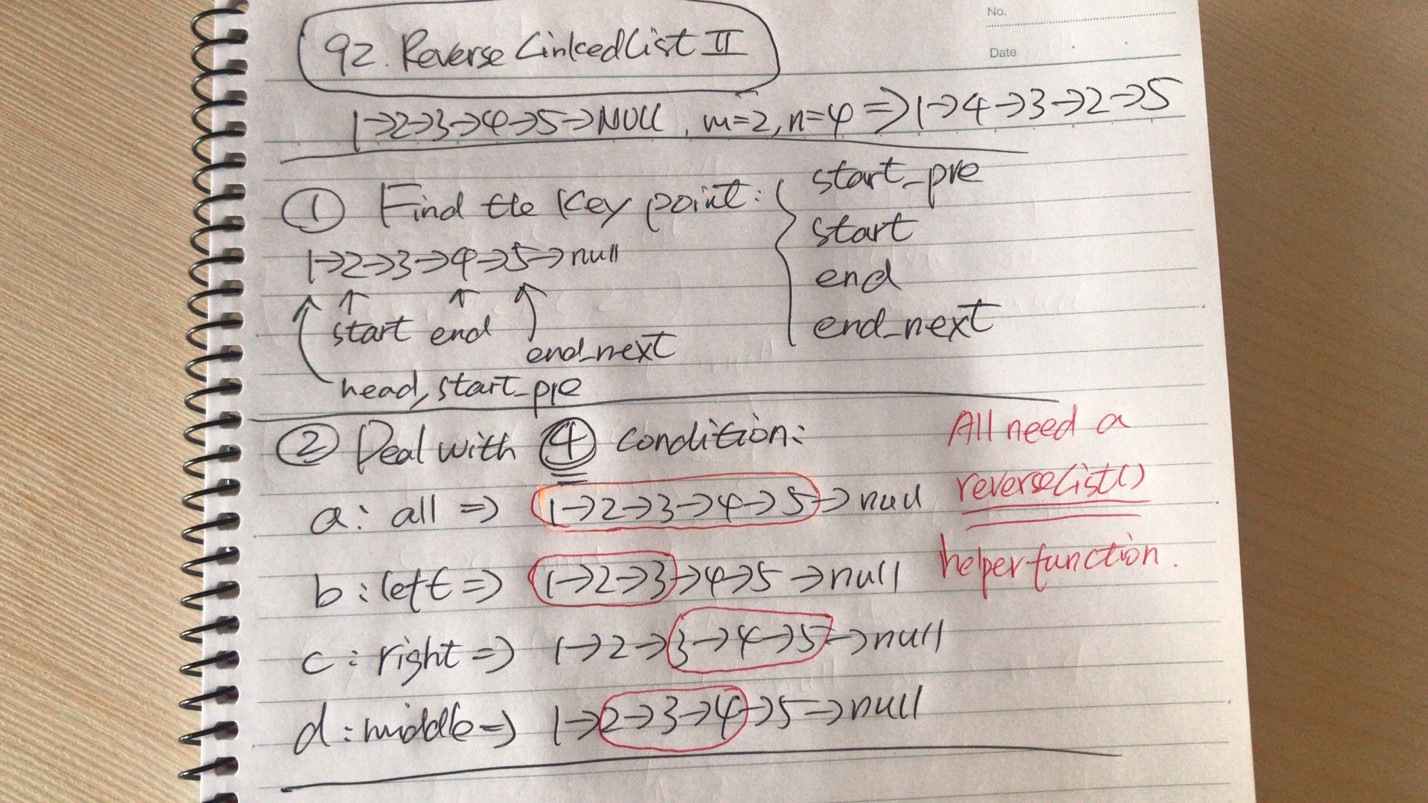 No.
Date
92. Reverse LinkedList II
1->2->3->4->5->NULL, m=2, n=4 => 1->4->3->2->5
① Find the Key point: { start_pre
start
end
end_next
1->2->3->4->5->null
start end
end_next
head, start_pre
② Deal with ④ condition:
a: all => 1->2->3->4->5->null
b: left => 1->2->3->4->5->null
c: right => 1->2->3->4->5->null
d: middle => 1->2->3->4->5->null
All need a
reverseList()
helper function.